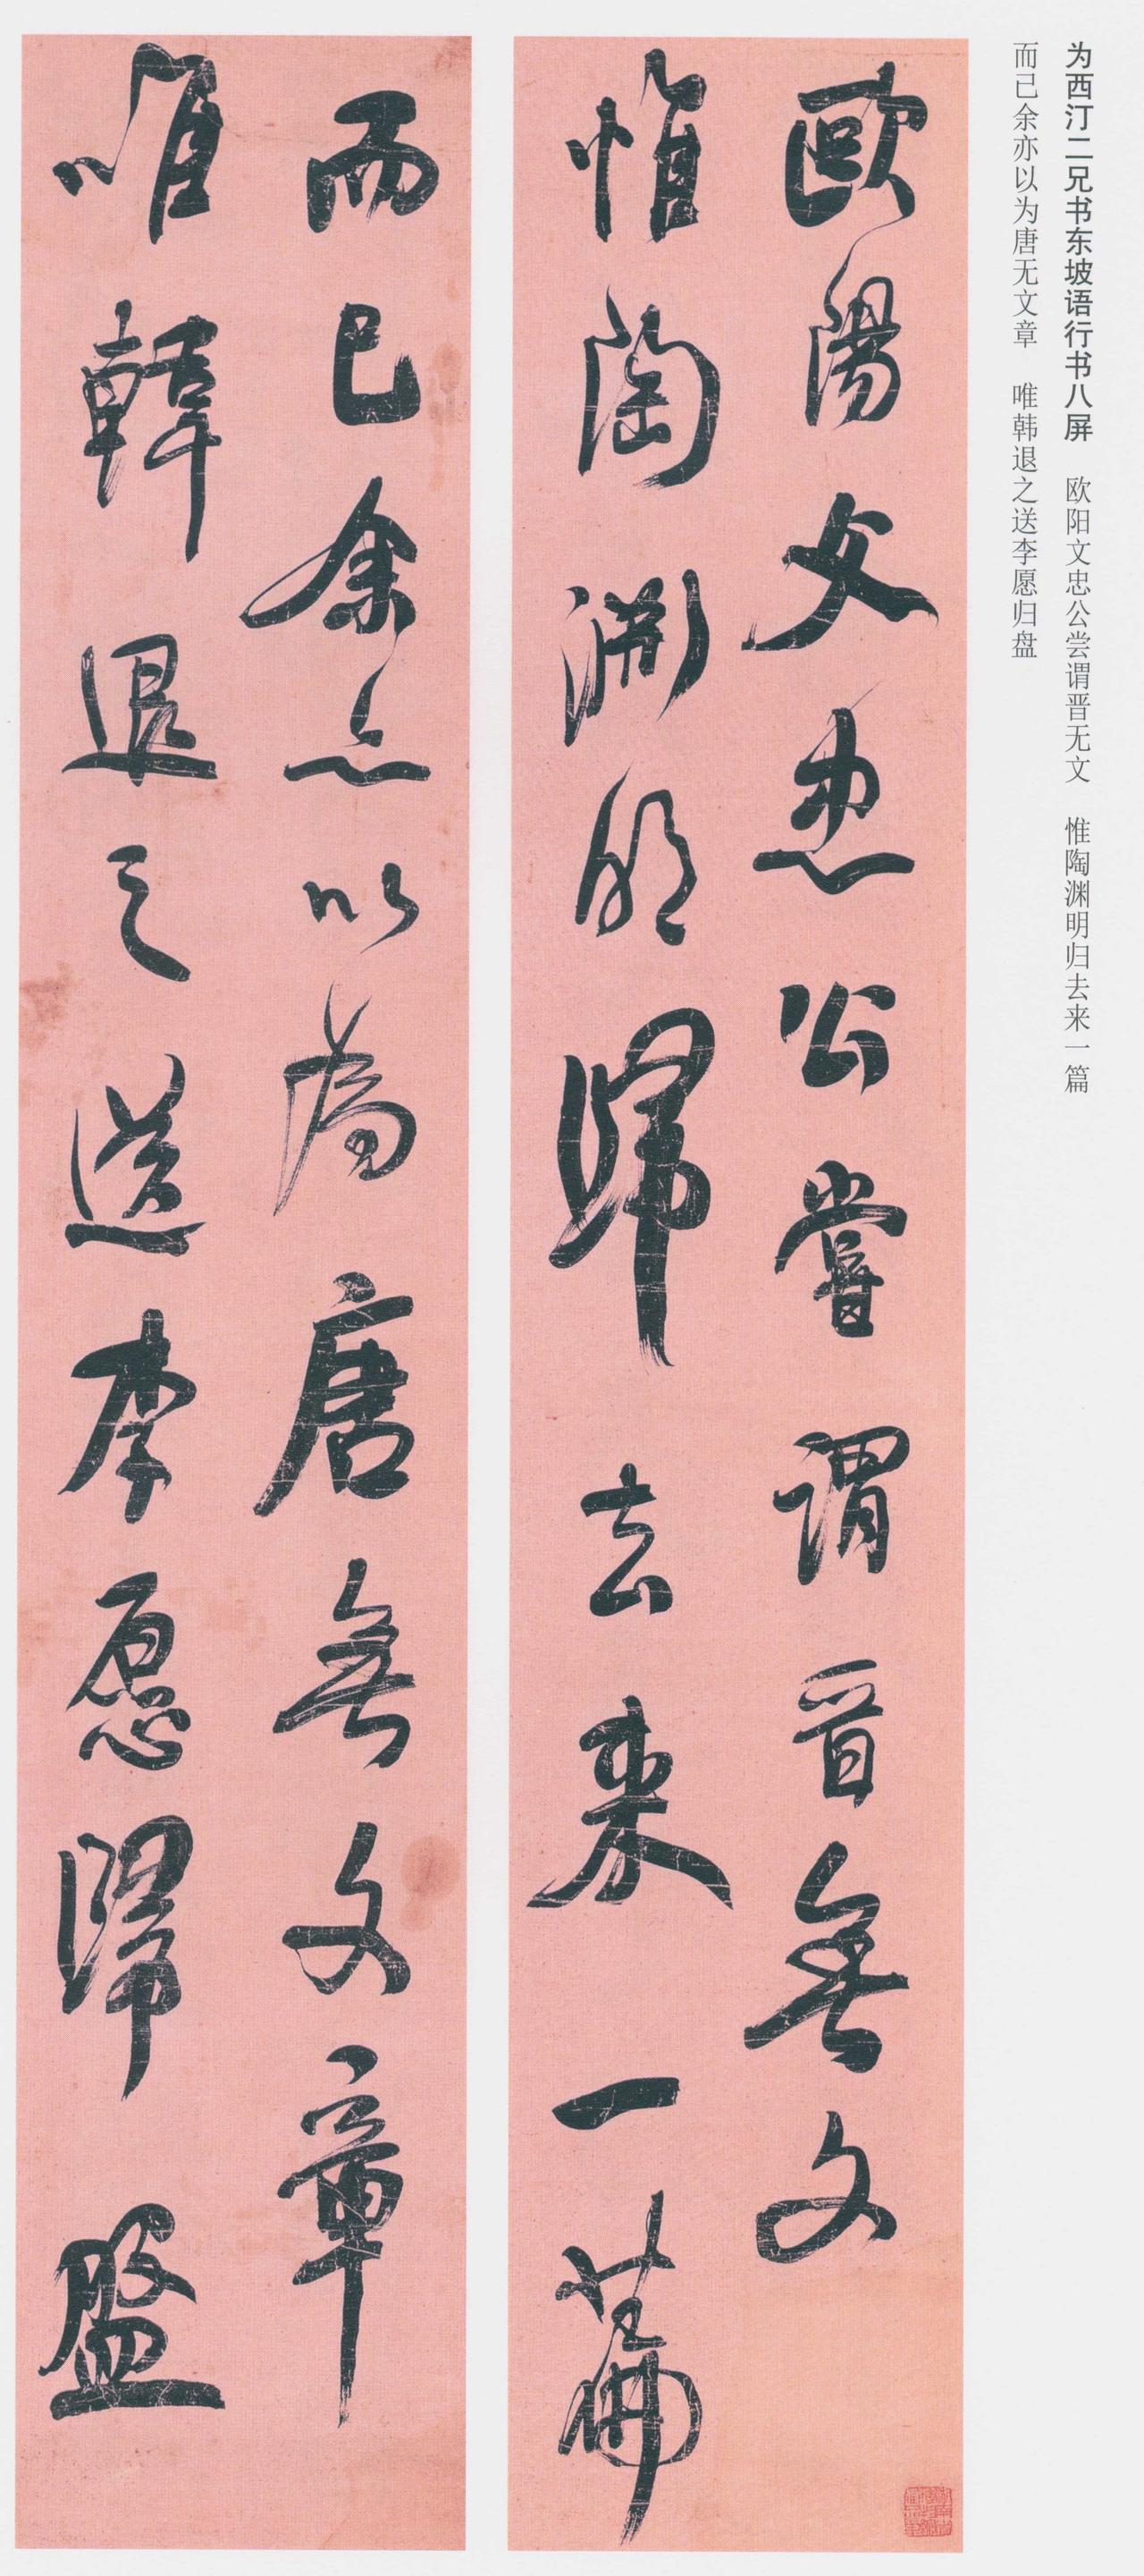 为西汀二兄书东坡语行书八屏 欧阳文忠公尝谓晋无文 惟陶渊明归去来一篇
而已余亦以为唐无文章 唯韩退之送李愿归盘
歐陽文忠公嘗謂晉無文
惟陶淵明歸去來一篇
而已余亦以為唐無文章
唯韓退之送李愿歸盤